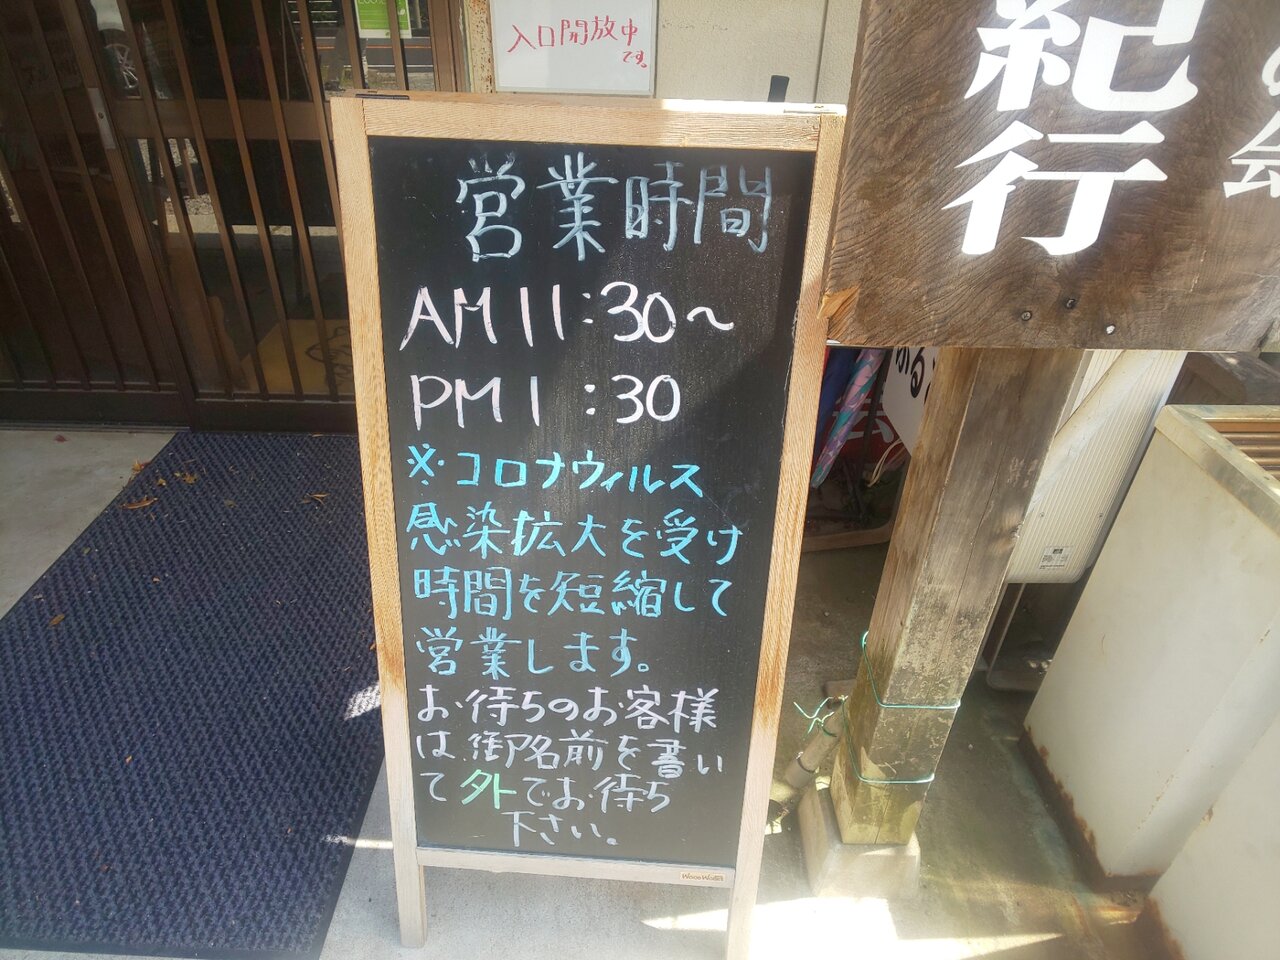 入口開放中
です。
紀行
会
営業時間
AM11:30〜
PM1:30
※コロナウィルス
感染拡大を受け
時間を短縮して
営業します。
お待ちのお客様
は御名前を書い
て外でお待ち
下さい。